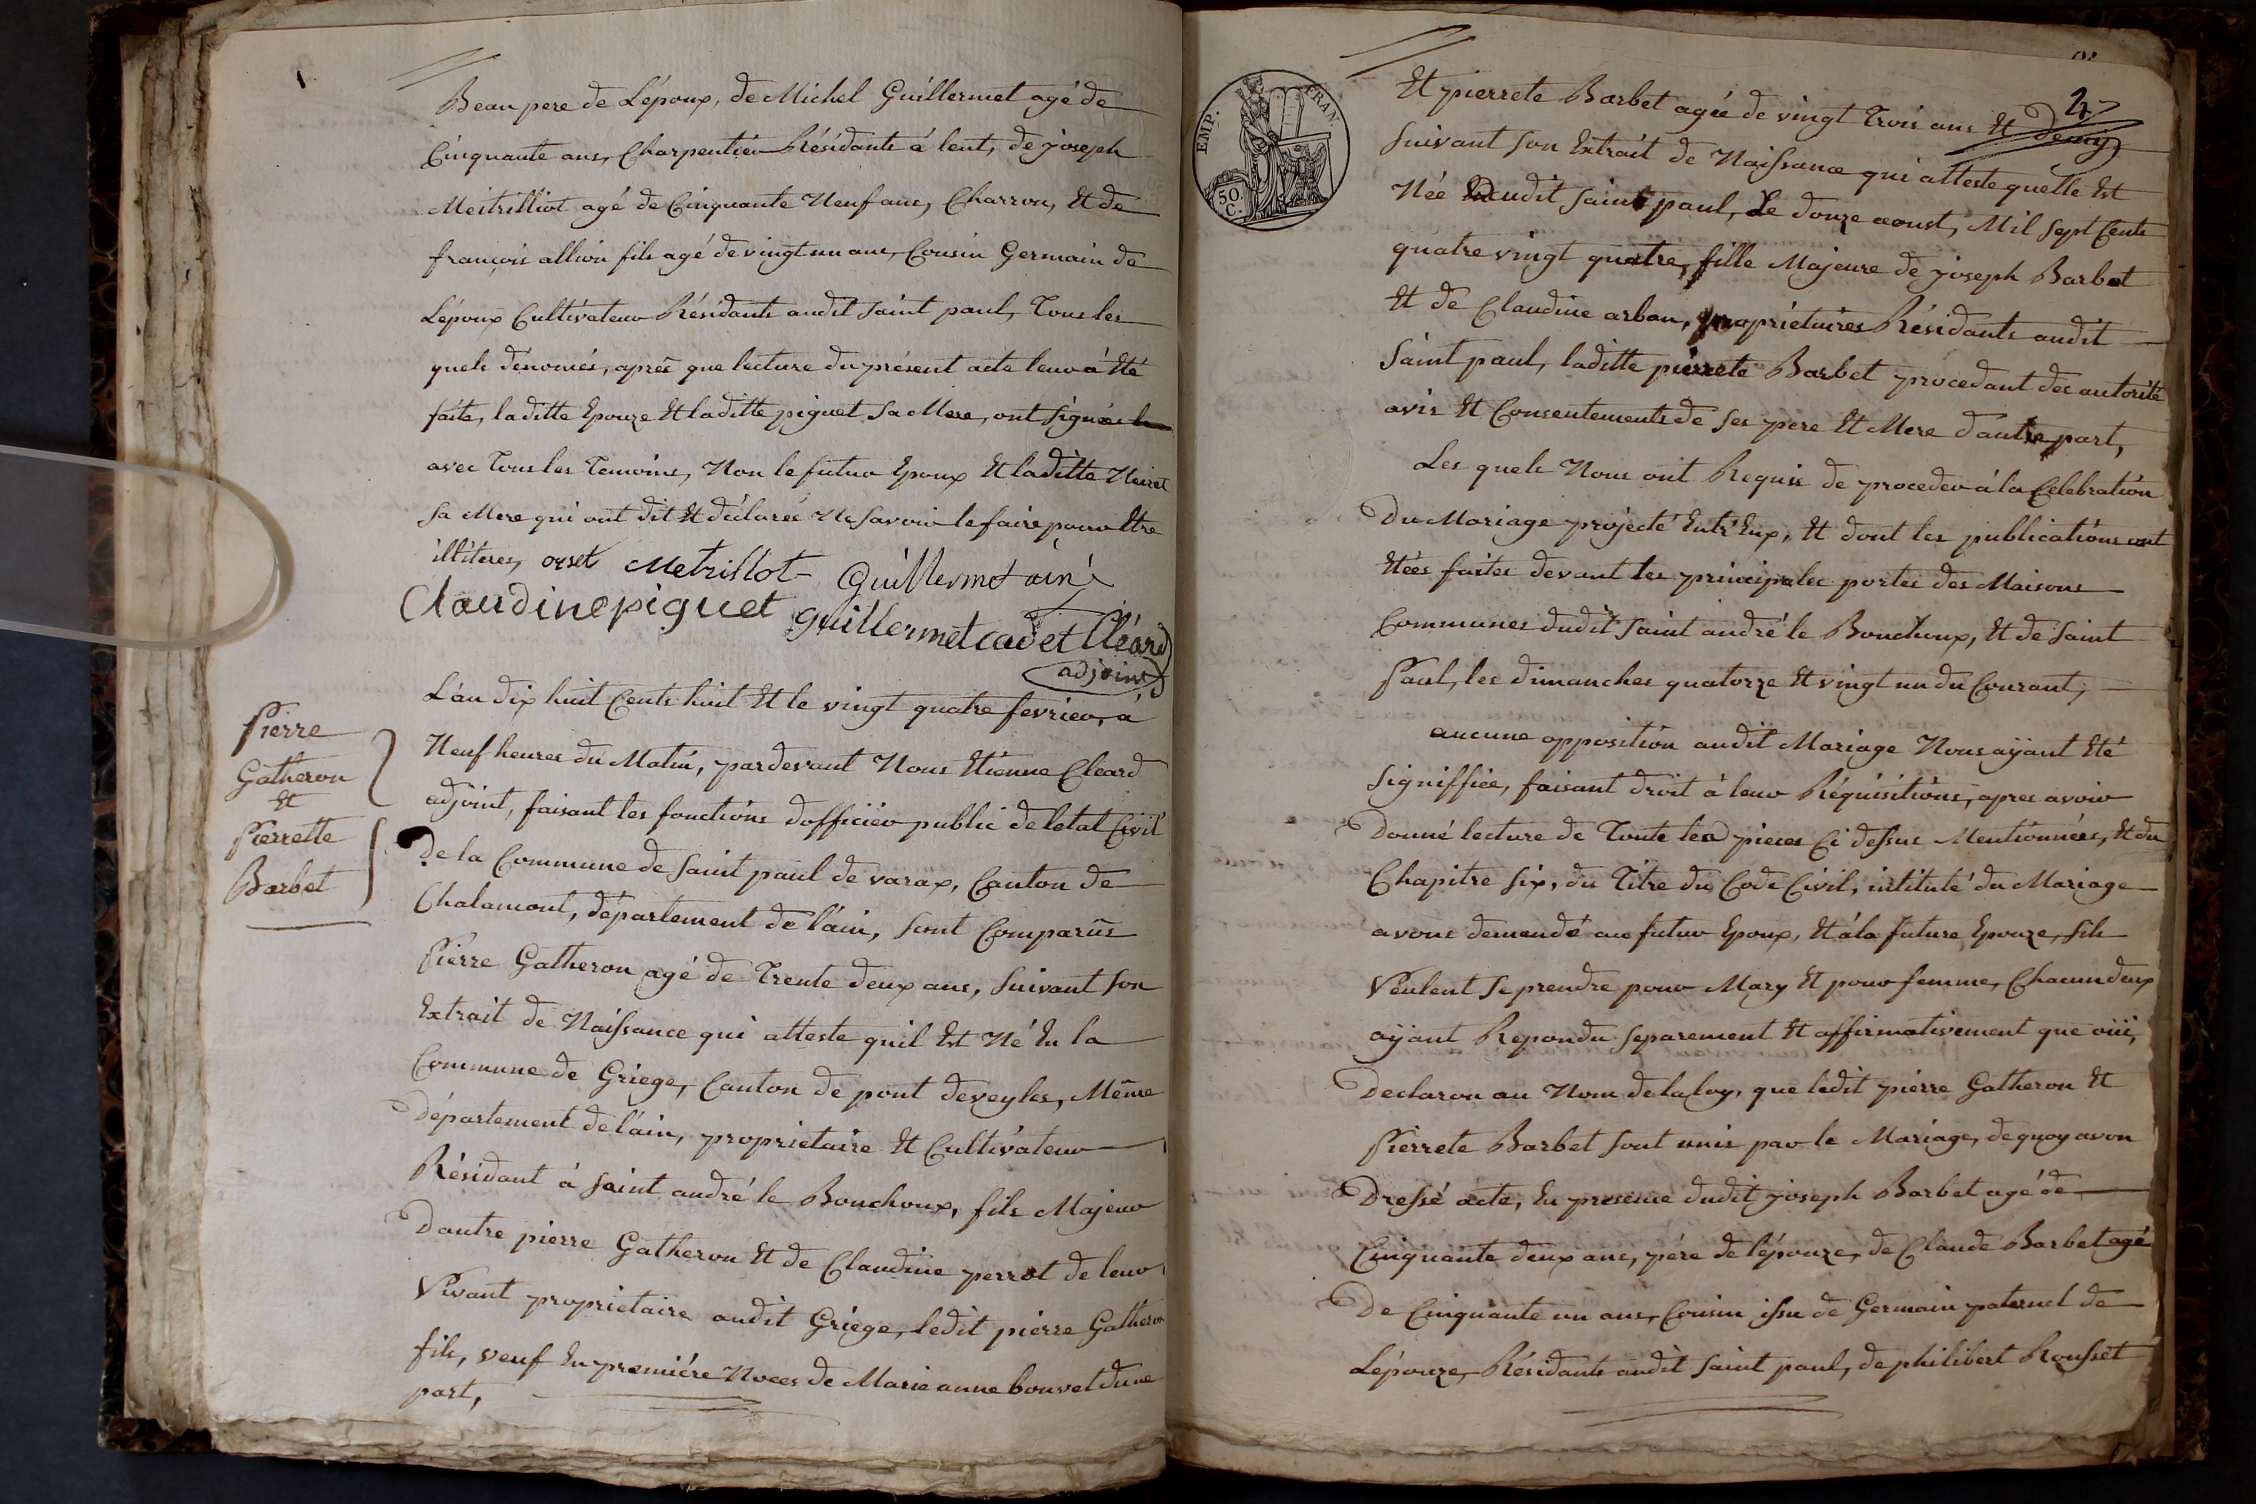 Beau pere de L'époux, de Michel Guillermet agé de
Cinquante ans, Charpentier Résidants à lent, de joseph
Meitrilliot agé de Cinquante Neuf ans, Charron, Et de
françois allion fils agé de vingt un ans, Cousin Germain de
L'époux Cultivateur Résidants audit saint paul, Tous les
quels dénomés, aprés que lecture du présent acte leur à Eté
faite, laditte Epouze Et laditte piguet Sa Mere, ont Signées
avec Tous les Temoins, Non le futur Epoux Et laditte
Sa Mere qui ont dit Et déclarée Ne Savoir le faire pour Etre
illiteres, orset Metrillot Guillermet ainé
Claudine piguet guillermet cadet Cléard
adjoint
Pierre
Gatheron
Et
Pierrette
Barbet
L'an dix huit Cents huit Et le vingt quatre fevrier, à
Neuf heures du Matin, pardevant Nous Etienne Cleard
adjoint, faisant les fonctions dofficier public de letat Civil
De la Commune de saint paul de varax, Canton de
Chalamont, département de l'ain, sont Comparûs
Pierre Gatheron agé de Trente deux ans, Suivant Son
Extrait de Naissance qui atteste quil Est Né En la
Commune de Griege, Canton de pont deveyles, Même
Département de l'ain, proprietaire Et Cultivateur
Résidant à saint andré le Bouchoux, fils Majeur
Dautre pierre Gatheron Et de Claudine perrot de leur
Vivant proprietaire audit Griege, ledit pierre Gatheron
fils, veuf En premiére Noces de Marie anne bouvet dune
part,
27
Et pierrete Barbet agée de vingt Trois ans Et Demy
Suivant Son Extrait de Naissance qui atteste quelle Est
Née audit saint paul, Le douze aoust, Mil Sept Cents
quatre vingt quatre, fille Majeure de joseph Barbet
Et de Claudine arban, propriétaires Résidants audit
Saint paul, laditte pierrete Barbet procedant des autorité
avis Et Consentements de Ses pere Et Mere dautre part,
Les quels Nous ont Requis de proceder à la Célebration
Du Mariage projecté Entr'Eux, Et dont les publications ont
Etées faites devant les principales portes des Maisons
Communes dudit Saint andré le Bouchoux, Et de Saint
Paul, les dimanches quatorze Et vingt un du Courant,
aucune opposition audit Mariage Nous aÿant Eté
Signiffiée, faisant droit à leur Réquisitions, apres avoir
Donné lecture de Toute les pieces Ci dessus Mentionnées, Et du
Chapitre Six, du Titre du Code Civil, intitulé du Mariage
avons demandé au futur Epoux, Et à la future Epouze, Sils
Veulent Se prendre pour Mary Et pour femme, Chacun deux
aÿant Repondu Separement Et affirmativement que oüi,
Declaron au Nom de la loy, que ledit pierre Gatheron Et
Pierrete Barbet Sont unis par le Mariage, de quoy avon
Dressé acte, En presence dudit joseph Barbet agé de
Cinquante deux ans, pére de l'épouze, de Claude Barbet agé
De Cinquante un ans, Cousin issu de Germain paternel de
L'épouze, Résidants audit Saint paul, de philibert Rousset
EMP. FRAN.
50.
C.